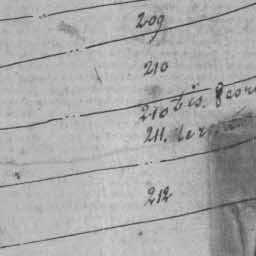 209
210
210 bis. Geor
211. ter
212